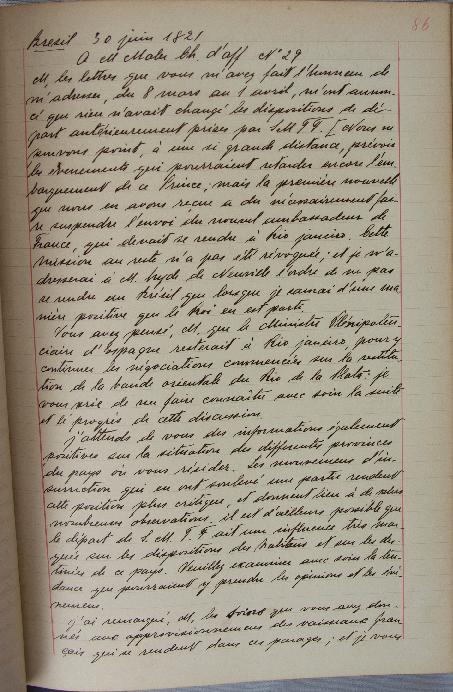 86
Bresil 30 juin 1821
A M Maler Ch. d'aff N° 29
M. les lettres que vous m'avez fait l'honneur de
m'adresser, du 8 mars au 1 avril, m'ont annon-
cé que rien n'avait changé les dispositions de dé-
part antérieurement prises par S M T F. [Nous ne
pouvons point, à une si grande distance, prévoir
les évènements qui pourraient retarder encore l'em-
barquement de ce Prince; mais la première nouvelle
que nous en avons reçue a du nécessairement fai-
re suspendre l'envoi du nouvel ambassadeur de
France, qui devait se rendre à Rio janeiro. Cette
mission au reste n'a pas été révoquée; et je n'a-
dresserai à M. hyde de Neuville l'ordre de ne pas
se rendre au Brésil que lorsque je saurai d'une ma-
nière positive que le Roi en est parti.
Vous avez pensé, M, que le Ministre Plénipoten-
ciaire d'Espagne resterait à Rio janeiro, pour y
continuer les négociations commencées sur la restitu-
tion de la bande orientale du Rio de la Plata: je
vous prie de me faire connaître avec soin la suite
et le progrès de cette discussion.
J'attends de vous des informations également
positives sur la situation des differentes provinces
du pays où vous résidez. Les mouvemens d'in-
surrection qui en ont soulevé une partie rendent
cette position plus critique et donnent lieu à de plus
nombreuses observations. il est d'ailleurs possible que
le départ de S. M. T. F ait une influence très mar-
quée sur les dispositions des habitans et sur les des-
tinées de ce pays. Veuillez examiner avec soin la ten-
dance que pourraient y prendre les opinions et les évè-
nemens.
j'ai remarqué, M, les soins que vous avez don-
nés aux approvisionnemens des vaisseaux fran
çais qui se rendent dans ces parages; et je vous